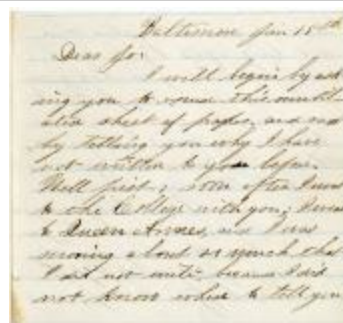 Baltimore Jan 15th
Dear Jo:
I will begin by ask
ing you to excuse this
sheet of paper, and
by telling you why I have
not written to you before.
Well first, soon after I was
to the College with you, I was
to Queen Annes, and I was
moving about so much that
I did not write because I did
not know where to tell you